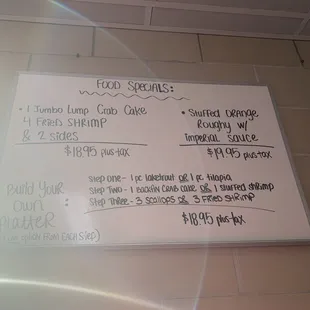 FOOD SPECIALS:
• 1 Jumbo Lump Crab Cake
4 FRIED SHRIMP
& 2 sides
$18.95 plus-tax
• Stuffed ORANGE
Roughy w/
imperial sauce
$19.95 plus tax
Build Your
Own
Platter :
Step one - 1 pc laketrout OR 1 pc tilapia
Step Two - 1 backfin crab cake OR 1 stuffed shrimp
Step Three - 3 scallops OR 3 FRIED SHRIMP
$18.95 plus-tax
from each step)